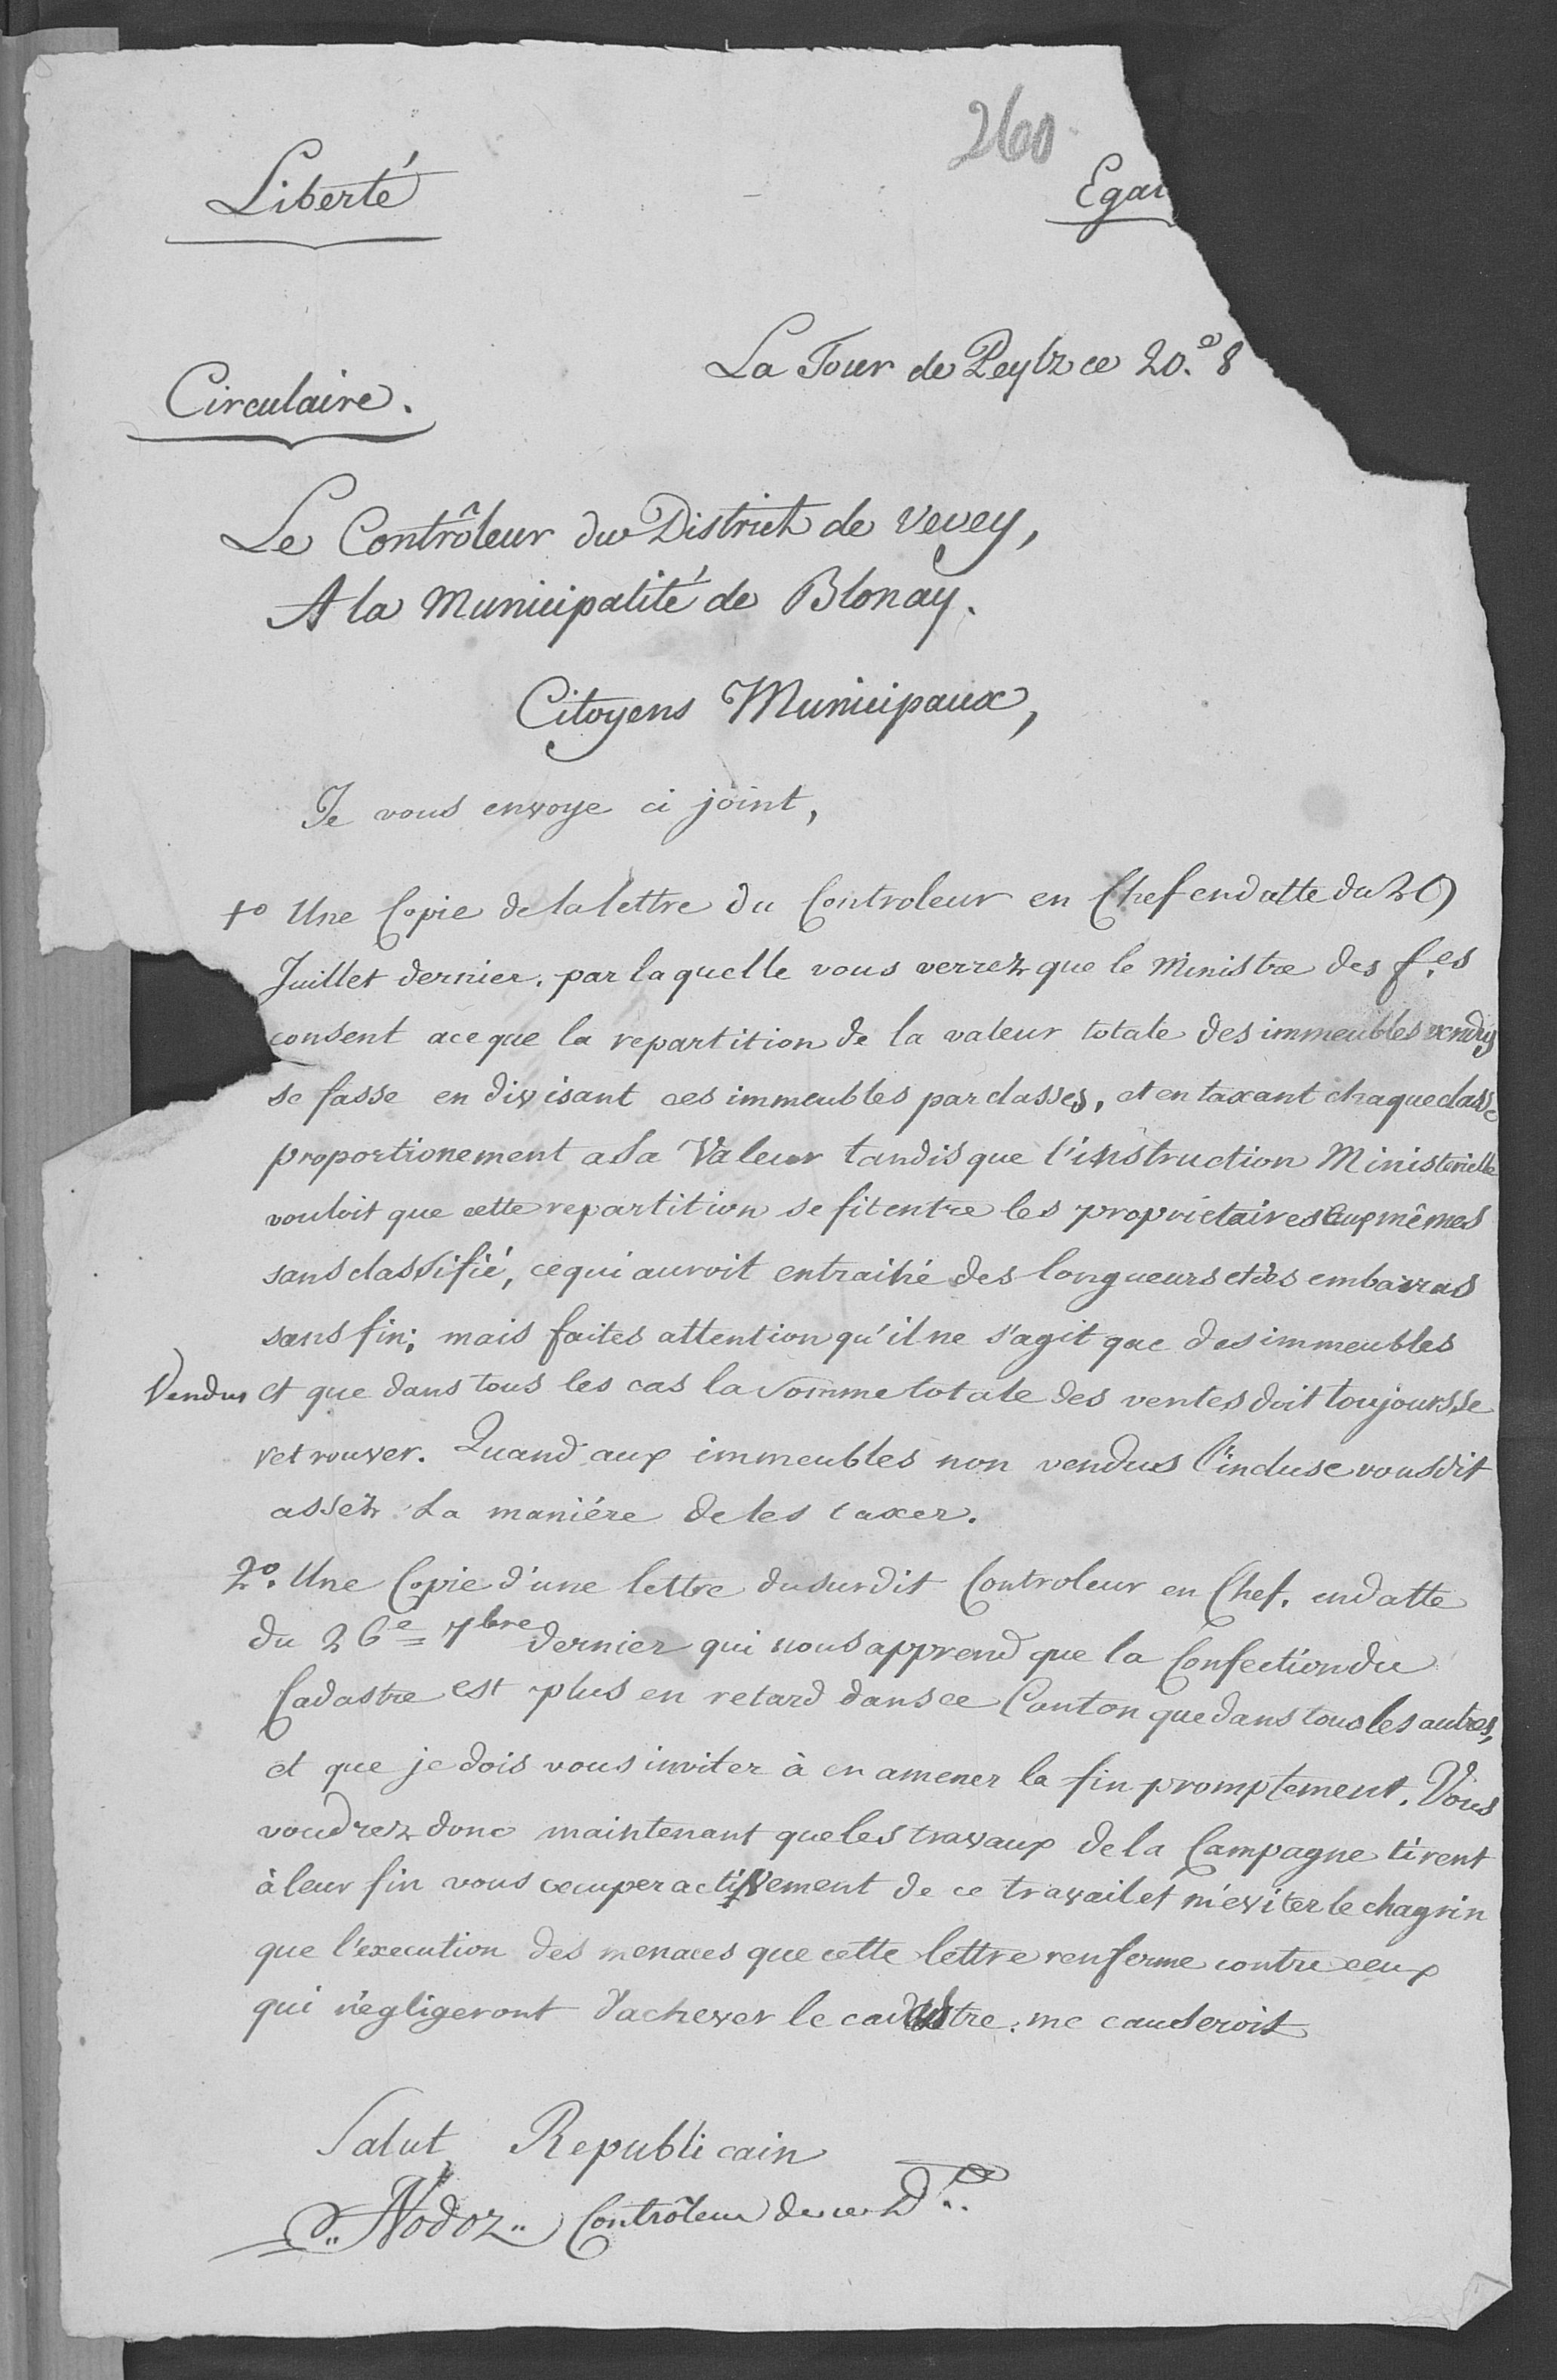 260
Liberté Ega
La Tour de Peylz ce 20.e 8
Circulaire.
Le Contrôleur du District de Vevey,
A la Municipalité de Blonay.
Citoyens Municipaux,
Je vous envoye ci joint,
1o Une Copie de la lettre du Controleur en Chef en datte du 29
Juillet dernier. par laquelle vous verrez que le Ministre des f.es
consent a ce que la repartition de la valeur totale des immeubles vendus
se fasse en divisant ces immeubles par classes, et en taxant chaque classe
proportionement a sa Valeur tandis que l'instruction Ministerielle
vouloit que cette repartition se fit entre les propriétaires eux mêmes
sans classifié, ce qui auroit entrainé des longueurs et des embarras
sans fin; mais faites attention qu'il ne s'agit que des immeubles
Vendus et que dans tous les cas la somme totale des ventes doit toujours se
retrouver. Quand aux immeubles non vendus l'incluse vous dit
assez la maniére de les taxer.
2o. Une Copie d'une lettre du surdit Controleur en Chef. en datte
du 26e 7bre dernier qui nous apprend que la Confection du
Cadastre est plus en retard dans ce Canton que dans tous les autres,
et que je dois vous inviter à en amener la fin promptement. Vous
voudrez donc maintenant que les travaux de la Campagne tirent
à leur fin vous occuper activement de ce travail et m'eviter le chagrin
que l'execution des menaces que cette lettre renferme contre ceux
qui négligeront d'achever le cadastre. me causeroit
Salut Republicain
Nodoz Contrôleur de ce D.